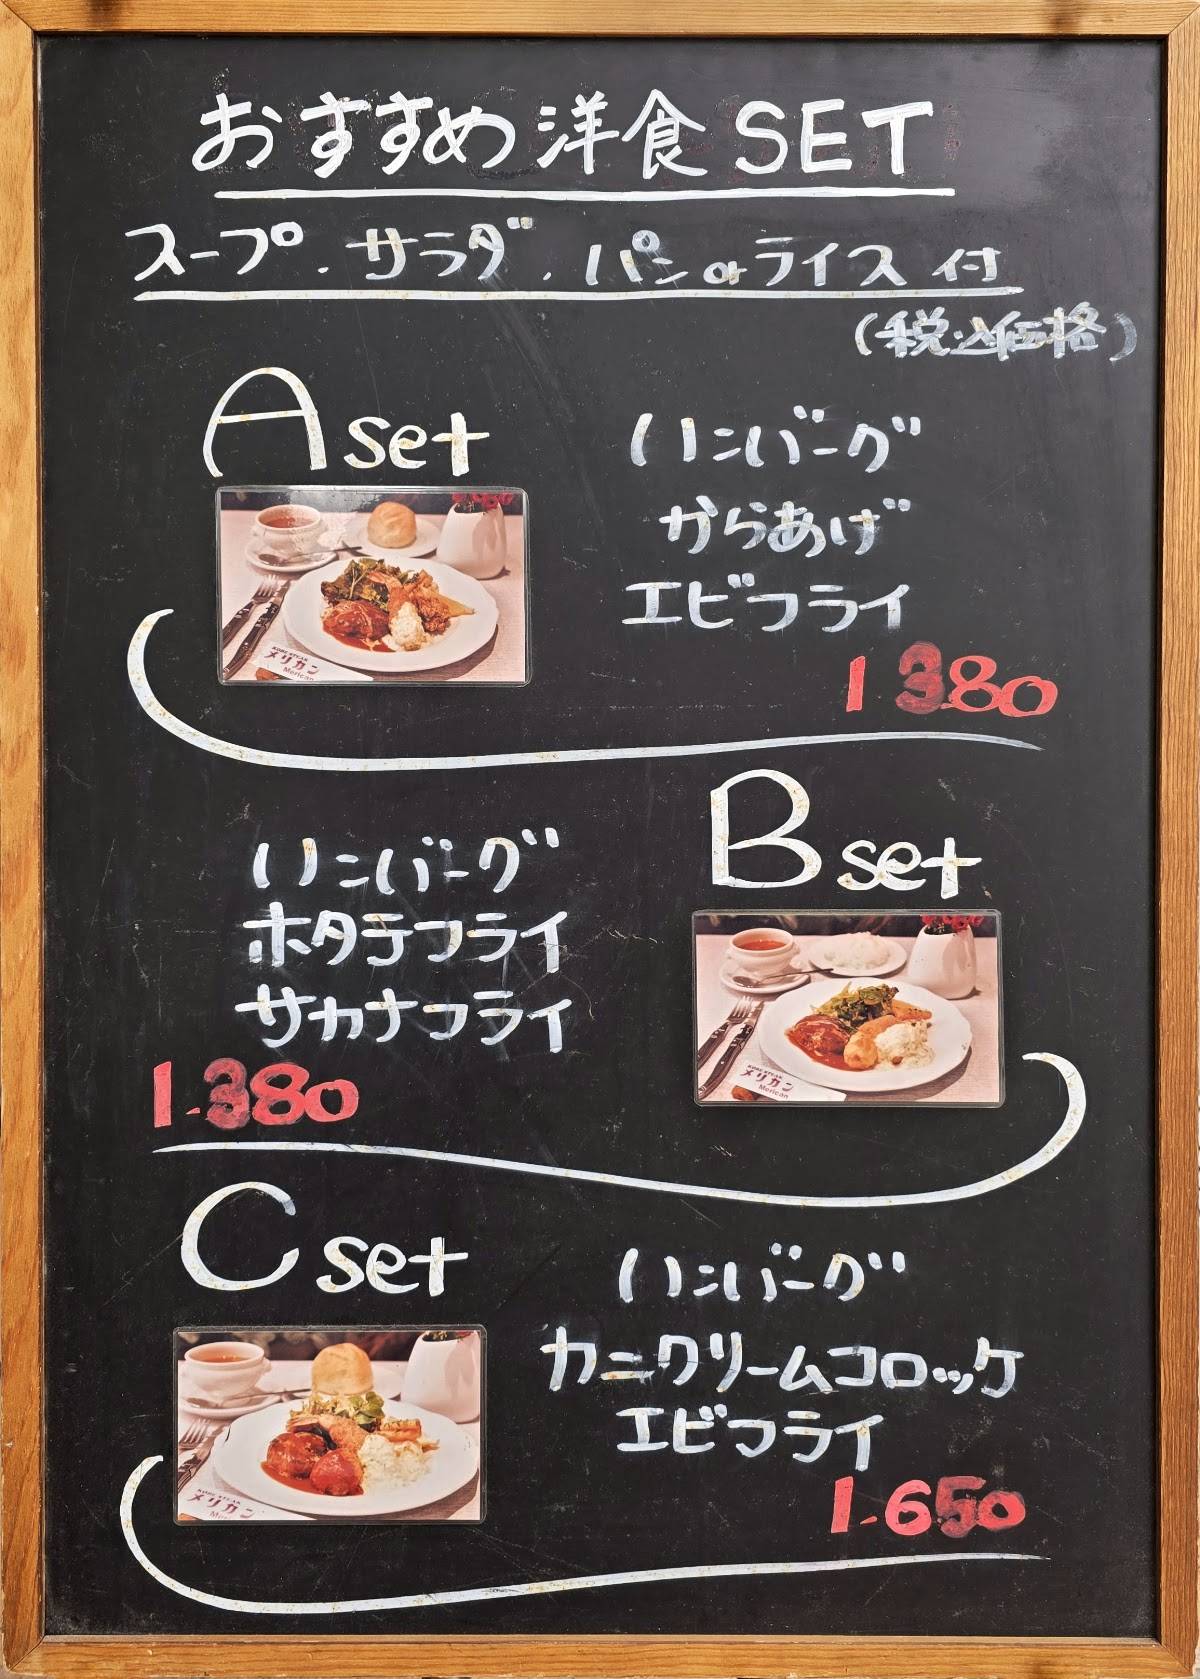 おすすめ洋食SET
スープ・サラダ・パンorライス付
(税込価格)
Aset
ハンバーグ
からあげ
エビフライ
KOBE STEAK
メリカン
Merican
1.380
Bset
ハンバーグ
ホタテフライ
サカナフライ
KOBE STEAK
メリカン
Merican
1.380
Cset
ハンバーグ
カニクリームコロッケ
エビフライ
KOBE STEAK
メリカン
1.650